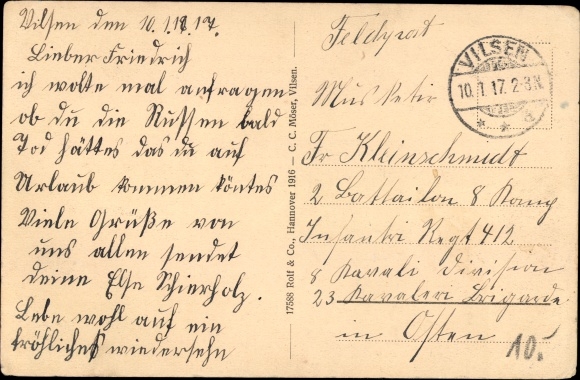 Vilsen den 10.1.1917.
Lieber Friedrich
ich wolte mal anfragen
ob du die Russen bald
Tod hättes das du auf
Urlaub kommen köntes
Viele Grüße von
uns allen sendet
deine Else Schierholz.
Lebe wohl auf ein
fröhliches wiedersehn
17588 Rolf & Co., Hannover 1916 — C. C. Möser, Vilsen.
Feldpost
VILSEN
10.1.17. 2-3N
* * a
Musketir
Fr Kleinschmedt
2 Battailon 8 Komp
Infantri Regt 412
8 Kavali Division
23 Kavaleri Brigarde
in Osten
10.-